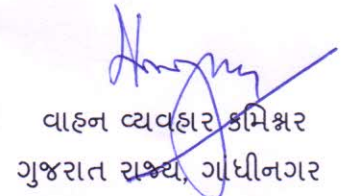 વાહન વ્યવહાર કમિશ્નર
ગુજરાત રાજ્ય, ગાંધીનગર